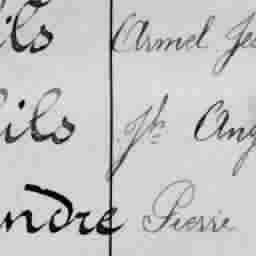 ils Armel Je
ils Jh Ang
ndre Pierre